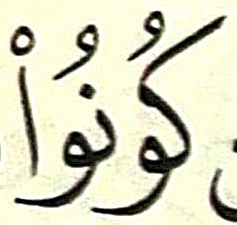 كُونُواْ